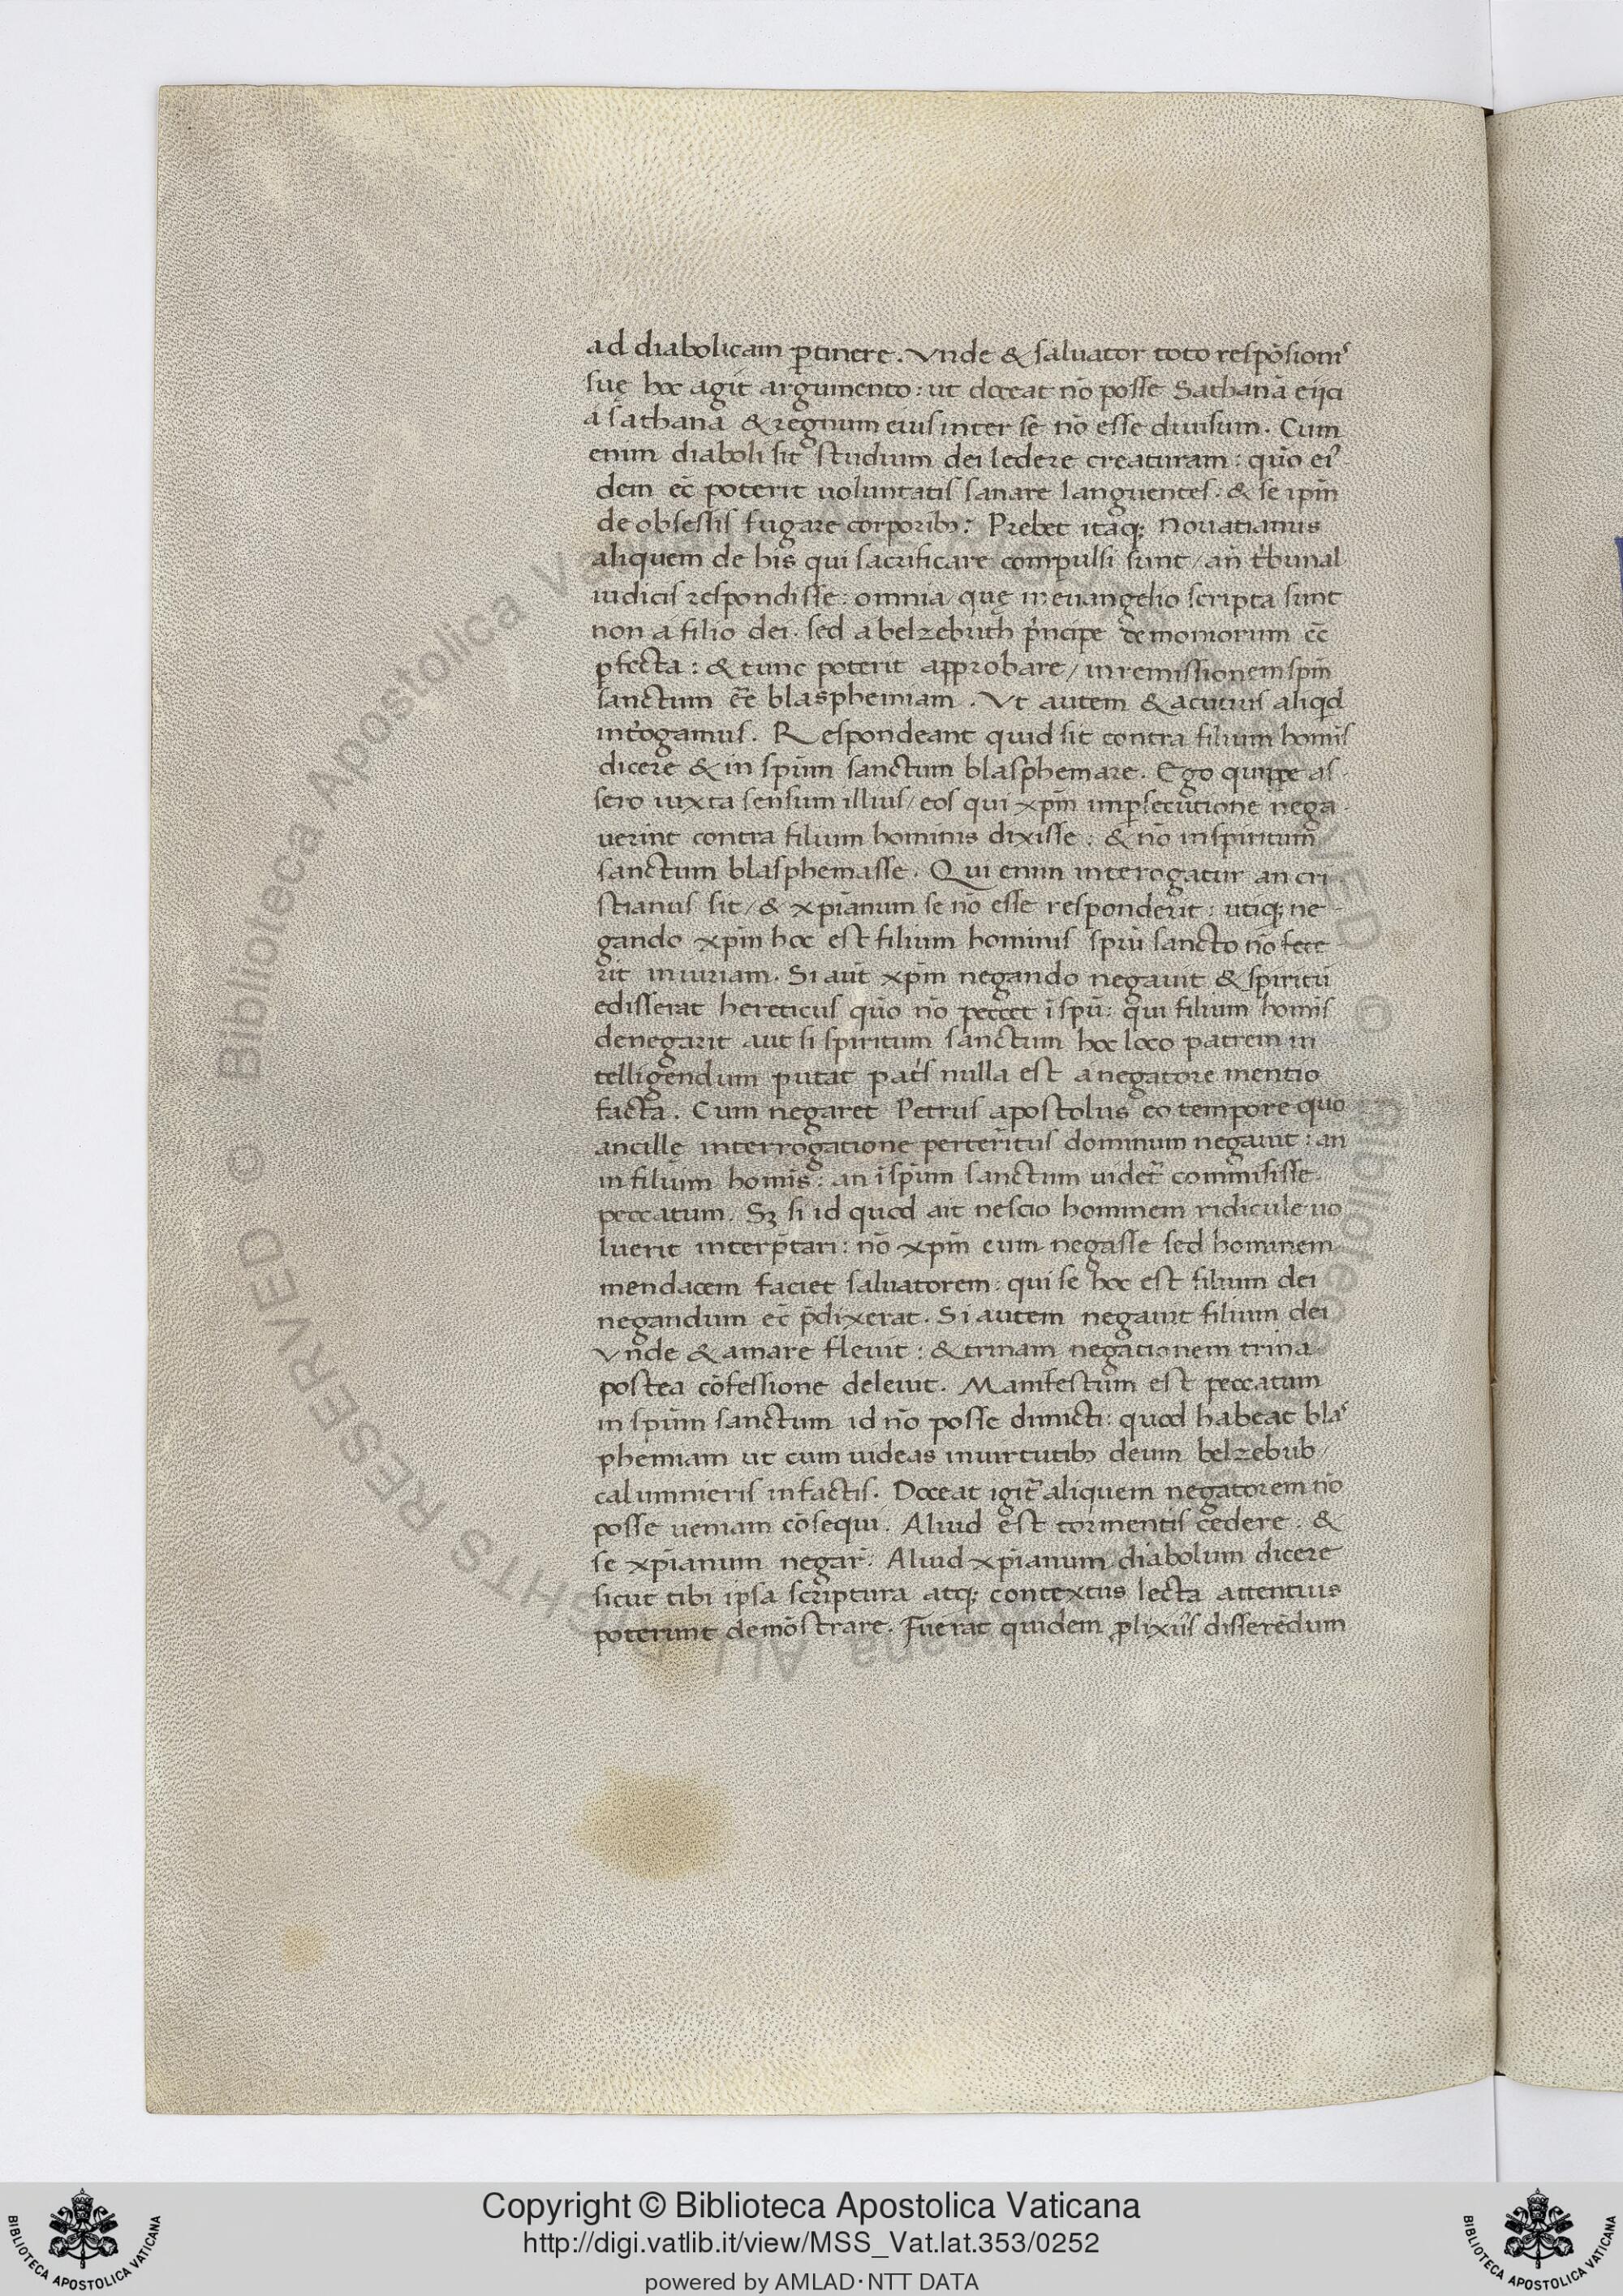 ad diabolicam ꝑtinere. Vnde & saluator toto respōsionis
suę hoc agit argumento: ut doceat nō posse Sathanā eijci
a sathana & regnum eius inter se nō esse diuisum. Cum
enim diaboli sit studium dei ledere creaturam: quō eius
dem eē poterit uoluntatis sanare languentes. & se ipm̄
de obsessis fugare corporibꝫ: Prebet itaqꝫ Nouatianus
aliquem de his qui sacrificare compulsi sunt/ an tribunal
iudicis respondisse: omnia/ quę in euangelio scripta sunt
non a filio dei. sed a belzebuth principe demoniorum eē
ꝑfecta: & tunc poterit approbare/ in remissionem spm̄
sanctum eē blasphemiam. Vt autem & acutius aliqd
int̄ogamus. Respondeant quid sit contra filium homīs
dicere & in spm̄ sanctum blasphemare. Ego quippe as
sero iuxta sensum illius/ eos qui xp̄m in ꝑsecutione nega
uerint contra filium hominis dixisse: & nō in spiritum
sanctum blasphemasse. Qui enim interogatur an cri
stianus sit/ & xp̄ianum se nō esse responderit: utiqꝫ ne
gando xp̄m hoc est filium hominis spū sancto nō fece
rit iniuriam. Si aūt xp̄m negando negauit & spiritū
edisserat hereticus quō nō peccet ī spū: qui filium homīs
denegarit aut si spiritum sanctum hoc loco patrem in
telligendum putat patris nulla est a negatore mentio
facta. Cum negaret Petrus apostolus eo tempore quo
ancillę interrogatione perterritus dominum negauit: an
in filium homīs: an ī spm̄ sanctum uidet̄ commisisse
peccatum. Sꝫ si id quod ait nescio hominem ridicule uo
luerit interp̄tari: nō xp̄m eum negasse sed hominem
mendacem faciet saluatorem: qui se hoc est filium dei
negandum eē p̄dixerat. Si autem negauit filium dei
Vnde & amare fleuit: & trinam negationem trina
postea cōfessione deleuit. Manifestum est peccatum
in spm̄ sanctum id nō posse dimicti: quod habeat blas
phemiam ut cum uideas in uirtutibꝫ deum belzebub
calumnieris in factis. Doceat igit̄ aliquem negatorem nō
posse ueniam cōsequi. Aliud est tormentis cedere: &
se xp̄ianum negar̄: Aliud xp̄ianum diabolum dicere
sicut tibi ipsa scriptura atqꝫ contextus lecta attentius
poterunt demōstrare. Fuerat quidem ꝓlixius disserēdum
Copyright © Biblioteca Apostolica Vaticana
http://digi.vatlib.it/view/MSS_Vat.lat.353/0252
powered by AMLAD·NTT DATA